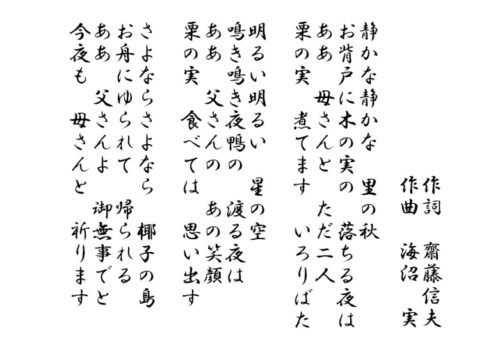 作詞　齋藤信夫
作曲　海沼　実
静かな静かな　里の秋
お背戸に木の実の　落ちる夜は
ああ　母さんと　ただ二人
栗の実　煮てます　いろりばた
明るい明るい　星の空
鳴き鳴き夜鴨の　渡る夜は
ああ　父さんの　あの笑顔
栗の実　食べては　思い出す
さよならさよなら　椰子の島
お舟にゆられて　帰られる
ああ　父さんよ　御無事でと
今夜も　母さんと　祈ります